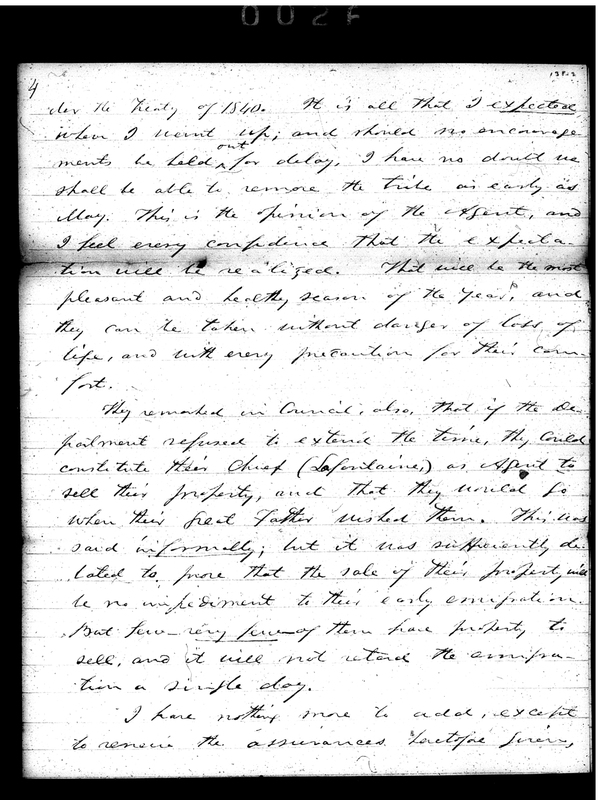 0025
4
der the Treaty of 1840. It is all that I expected
when I went up; and should no encourage
ments be held out for delay, I have no doubt we
shall be able to remove the tribe as early as
May. This is the opinion of the Agent, and
I feel every confidence that the expecta-
tion will be realized. That will be the most
pleasant and healthy season of the year, and
they can be taken without danger of loss of
life, and with every precaution for their com
fort.
They remarked in Council, also, that if the De-
partment refused to extend the time, they could
constitute their Chief (Lafontaine,) as Agent to
sell their property, and that they would go
when their Great Father wished them. This was
said informally; but it was sufficiently de-
bated to prove that the sale of their property will
be no impediment to their early emigration.
But few—very few—of them have property to
sell, and it will not retard the emigra-
tion a single day.
I have nothing more to add, except
to renew the assurances heretofore given,